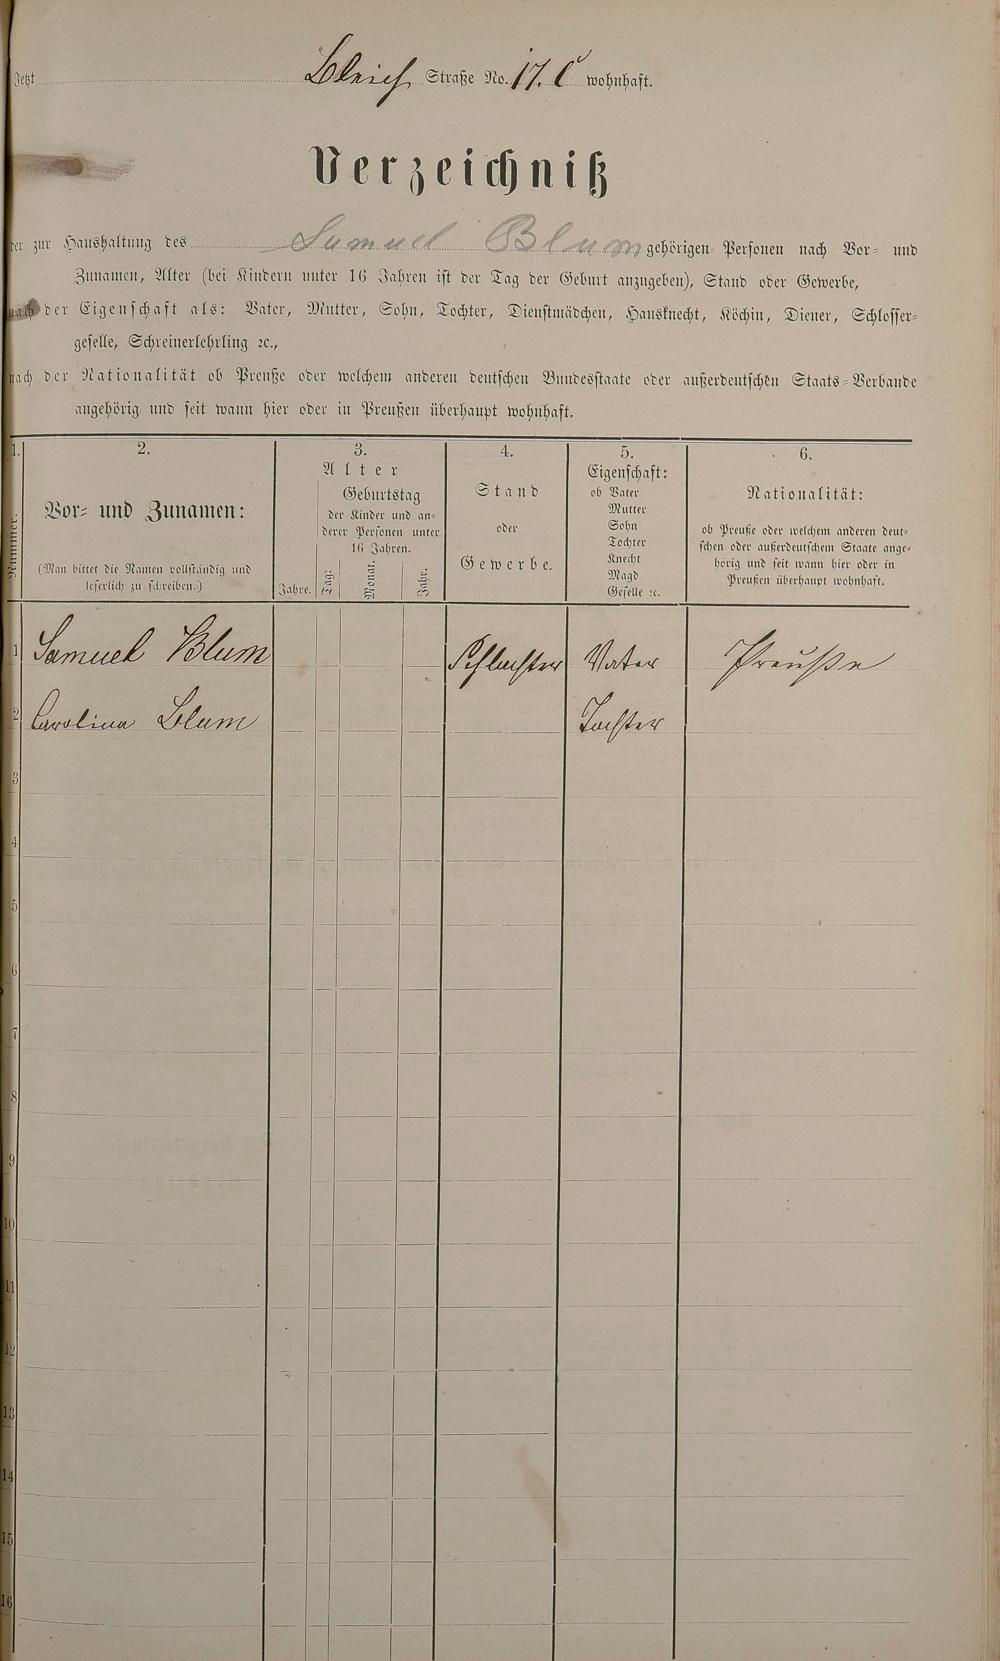 Jetzt Bleich Straße No. 17. C wohnhaft.
Verzeichniß
der zur Haushaltung des Samuel Blum gehörigen Personen nach Vor- und
Zunamen, Alter (bei Kindern unter 16 Jahren ist der Tag der Geburt anzugeben), Stand oder Gewerbe,
nach der Eigenschaft als: Vater, Mutter, Sohn, Tochter, Dienstmädchen, Hausknecht, Köchin, Diener, Schlosser-
geselle, Schreinerlehrling ꝛc.,
nach der Nationalität ob Preuße oder welchem anderen deutschen Bundesstaate oder außerdeutschen Staats-Verbande
angehörig und seit wann hier oder in Preußen überhaupt wohnhaft.
1.
Nummer.
2.
Vor- und Zunamen:
(Man bittet die Namen vollständig und
leserlich zu schreiben.)
3.
Alter
Jahre.
Geburtstag
der Kinder und an-
derer Personen unter
16 Jahren.
Tag:
Monat.
Jahr.
4.
Stand
oder
Gewerbe.
5.
Eigenschaft:
ob Vater
Mutter
Sohn
Tochter
Knecht
Magd
Geselle ꝛc.
6.
Nationalität:
ob Preuße oder welchem anderen deut-
schen oder außerdeutschem Staate ange-
hörig und seit wann hier oder in
Preußen überhaupt wohnhaft.
1 Samuel Blum Schlachter Vater Preuße
2 Carolina Blum Tochter
3
4
5
6
7
8
9
10
11
12
13
14
15
16